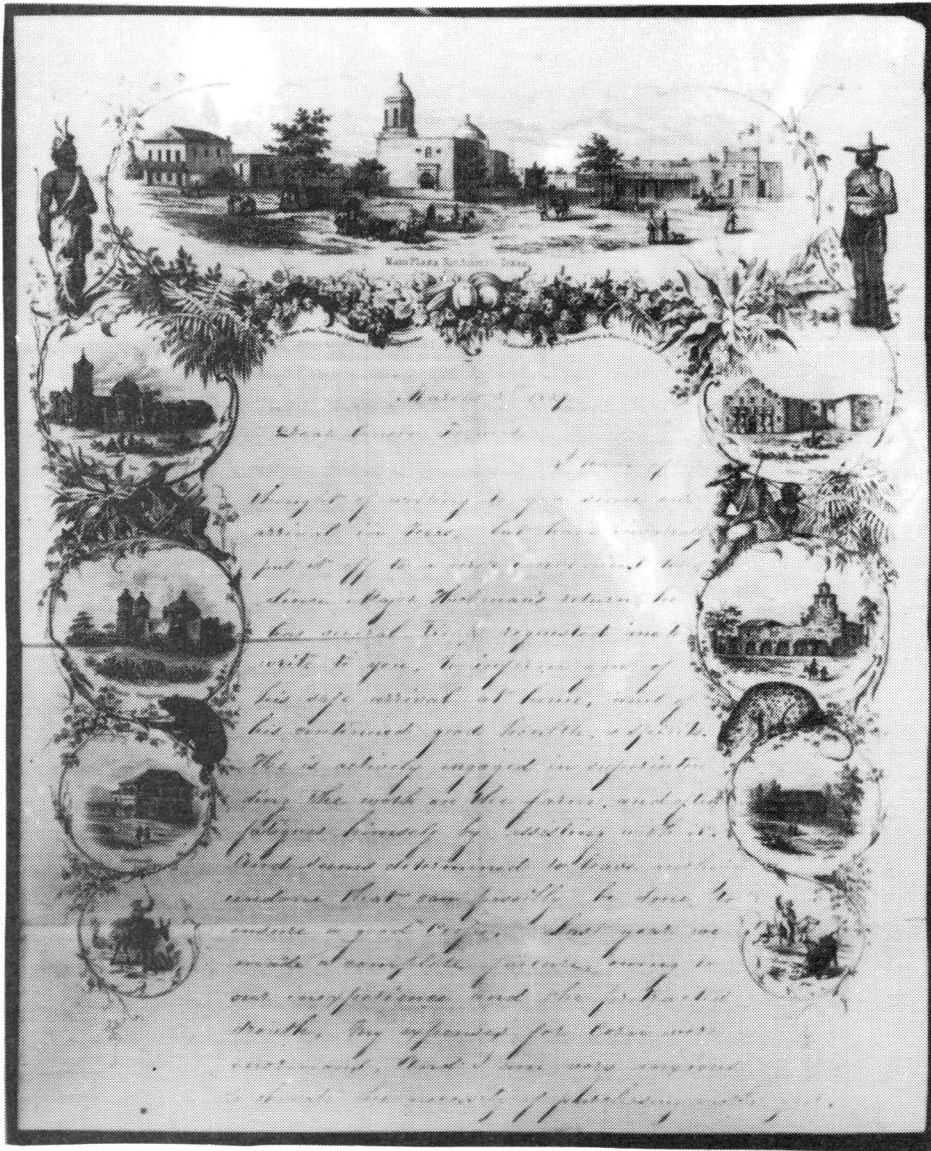 Main Plaza, San Antonio, Texas
March
Dear Cousin
thought of writing to you since our
arrival in Texas, but have invariably
put it off to a more convenient
time. Major return, he
has several times requested me to
write to you, to inform you of
his safe arrival at home, and of
his continued good health & spirits.
He is actively engaged in superinten
ding the work on the farm, and
fatigues himself by assisting
And seems determined to leave nothing
undone that can possibly be done to
ensure a good crop. Last year we
made a complete failure, owing to
our inexperience and the protracted
drouth. My expenses for corn were
enormous, And I am very anxious
the necessity of purchasing